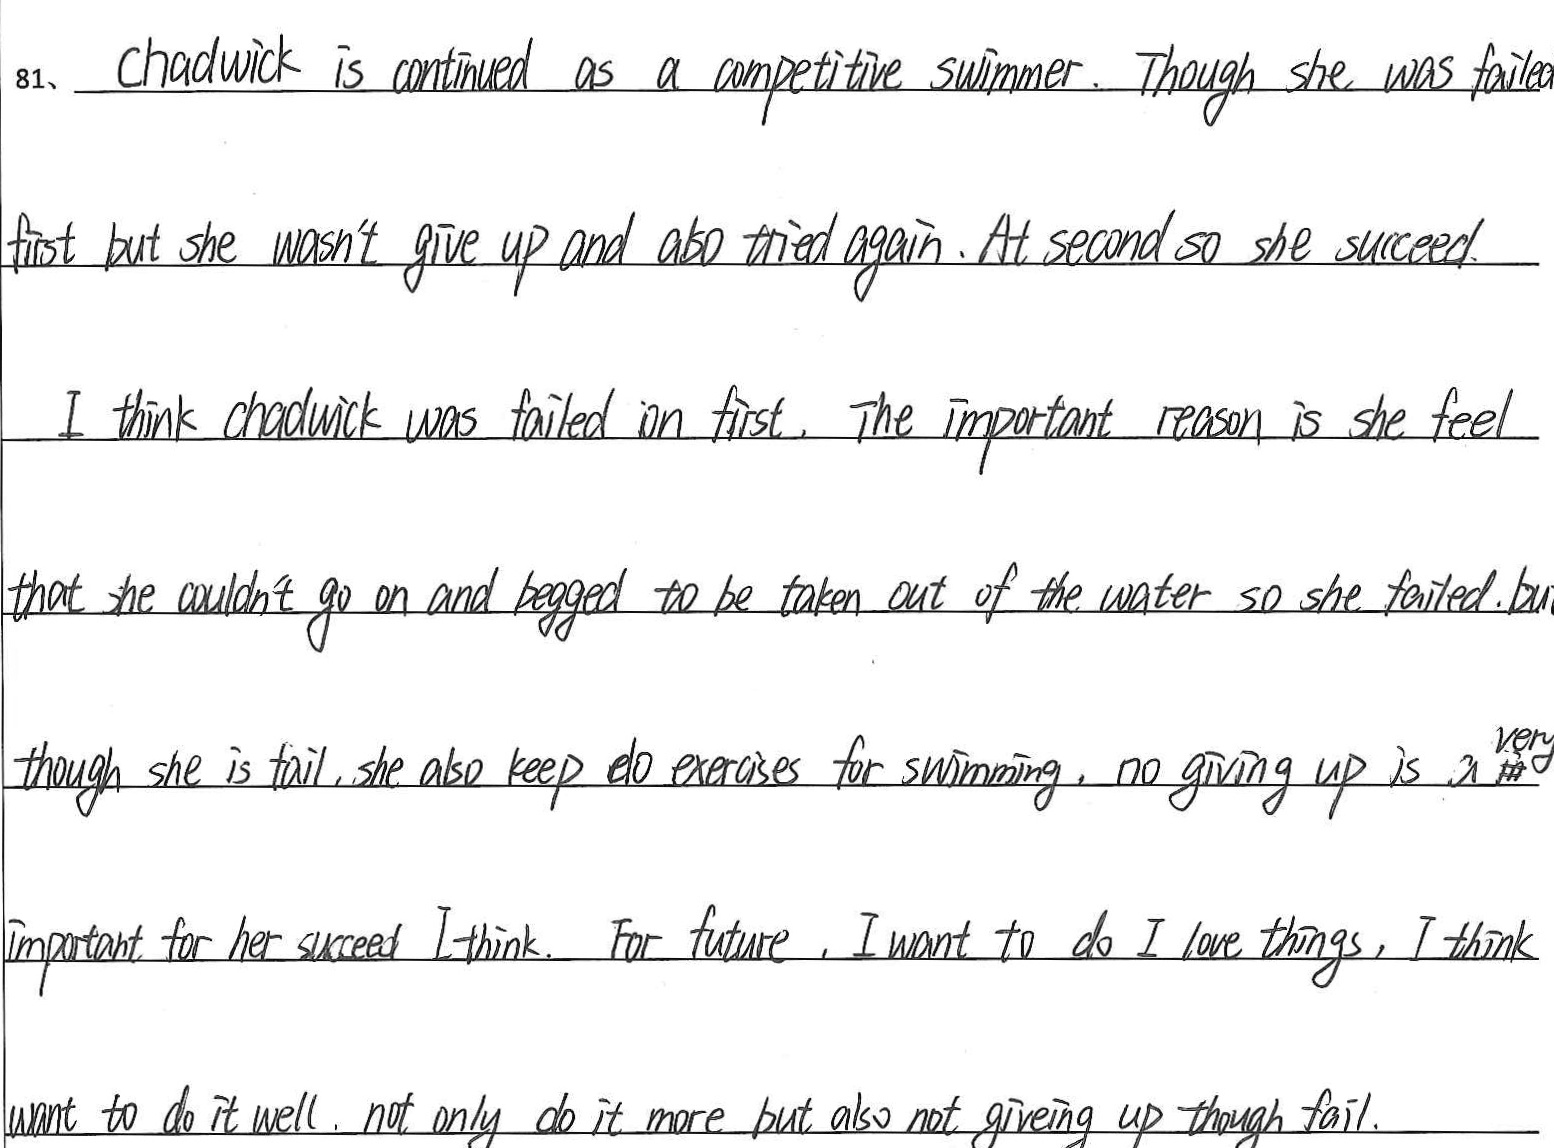 81、 Chadwick is continued as a competitive swimmer. Though she was failed
first but she wasn't give up and also tried again. At second so she succeed.
I think chadwick was failed on first. The important reason is she feel
that she couldn't go on and begged to be taken out of the water so she failed. but
though she is fail, she also keep do exercises for swimming, no giving up is a very
important for her succeed I think. For future, I want to do I love things, I think
want to do it well. not only do it more but also not giveing up though fail.